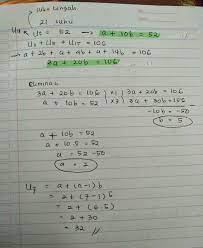 suku tengah
21 suku
U11 = 52 → a + 10b = 52
U3 + U5 + U15 = 106
→ a + 2b + a + 4b + a + 14b = 106
3a + 20b = 106
Eliminasi
3a + 20b = 106 | x1 | 3a + 20b = 106
a + 10b = 52 | x3 | 3a + 30b = 156
-10b = -50
b = 5
a + 10b = 52
a + 10.5 = 52
a = 52 - 50
a = 2
U7 = a + (n-1) b
= 2 + (7-1) 5
= 2 + (6.5)
= 2 + 30
= 32